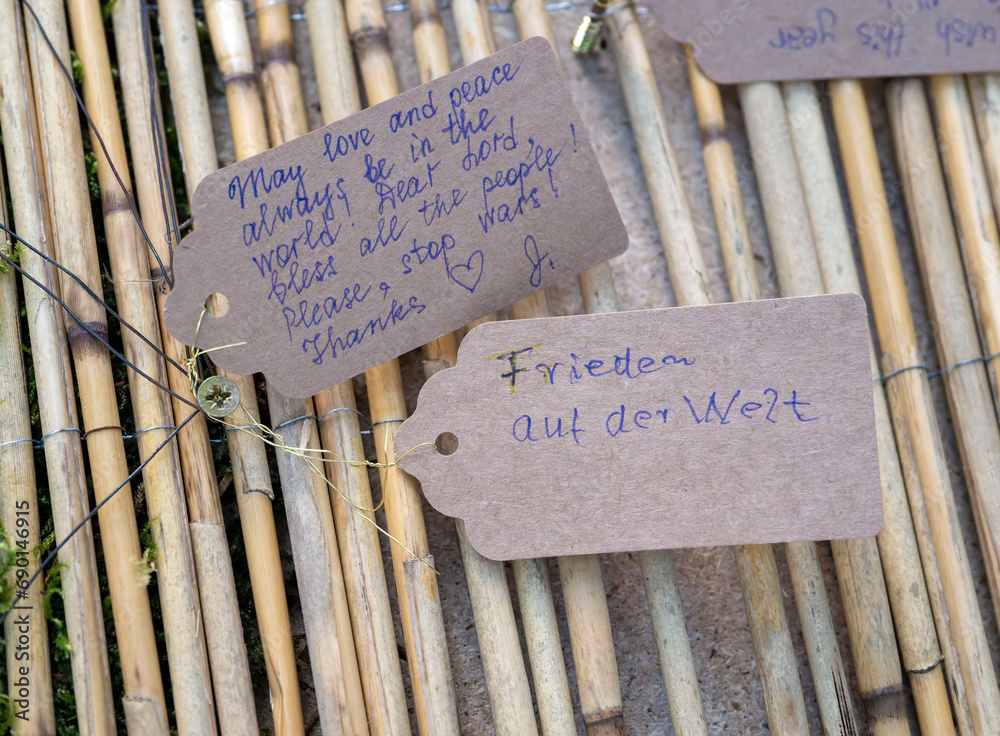 May love and peace
always be in the
world! Dear Lord,
bless all the people!
please, stop wars!
Thanks ♡ J.
Frieden
auf der Welt
wish this year
Adobe Stock | #690146915